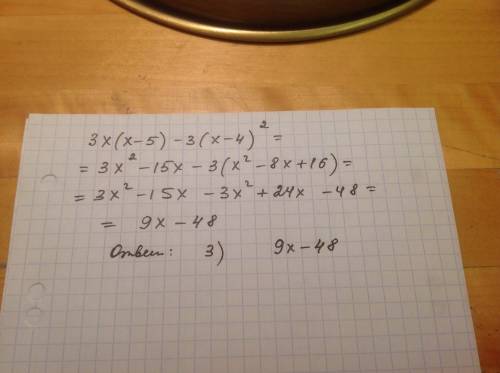 3x(x-5) -3(x-4)² =
= 3x² -15x -3(x² -8x+16) =
= 3x² -15x -3x² +24x -48 =
= 9x -48
Ответ: 3) 9x-48